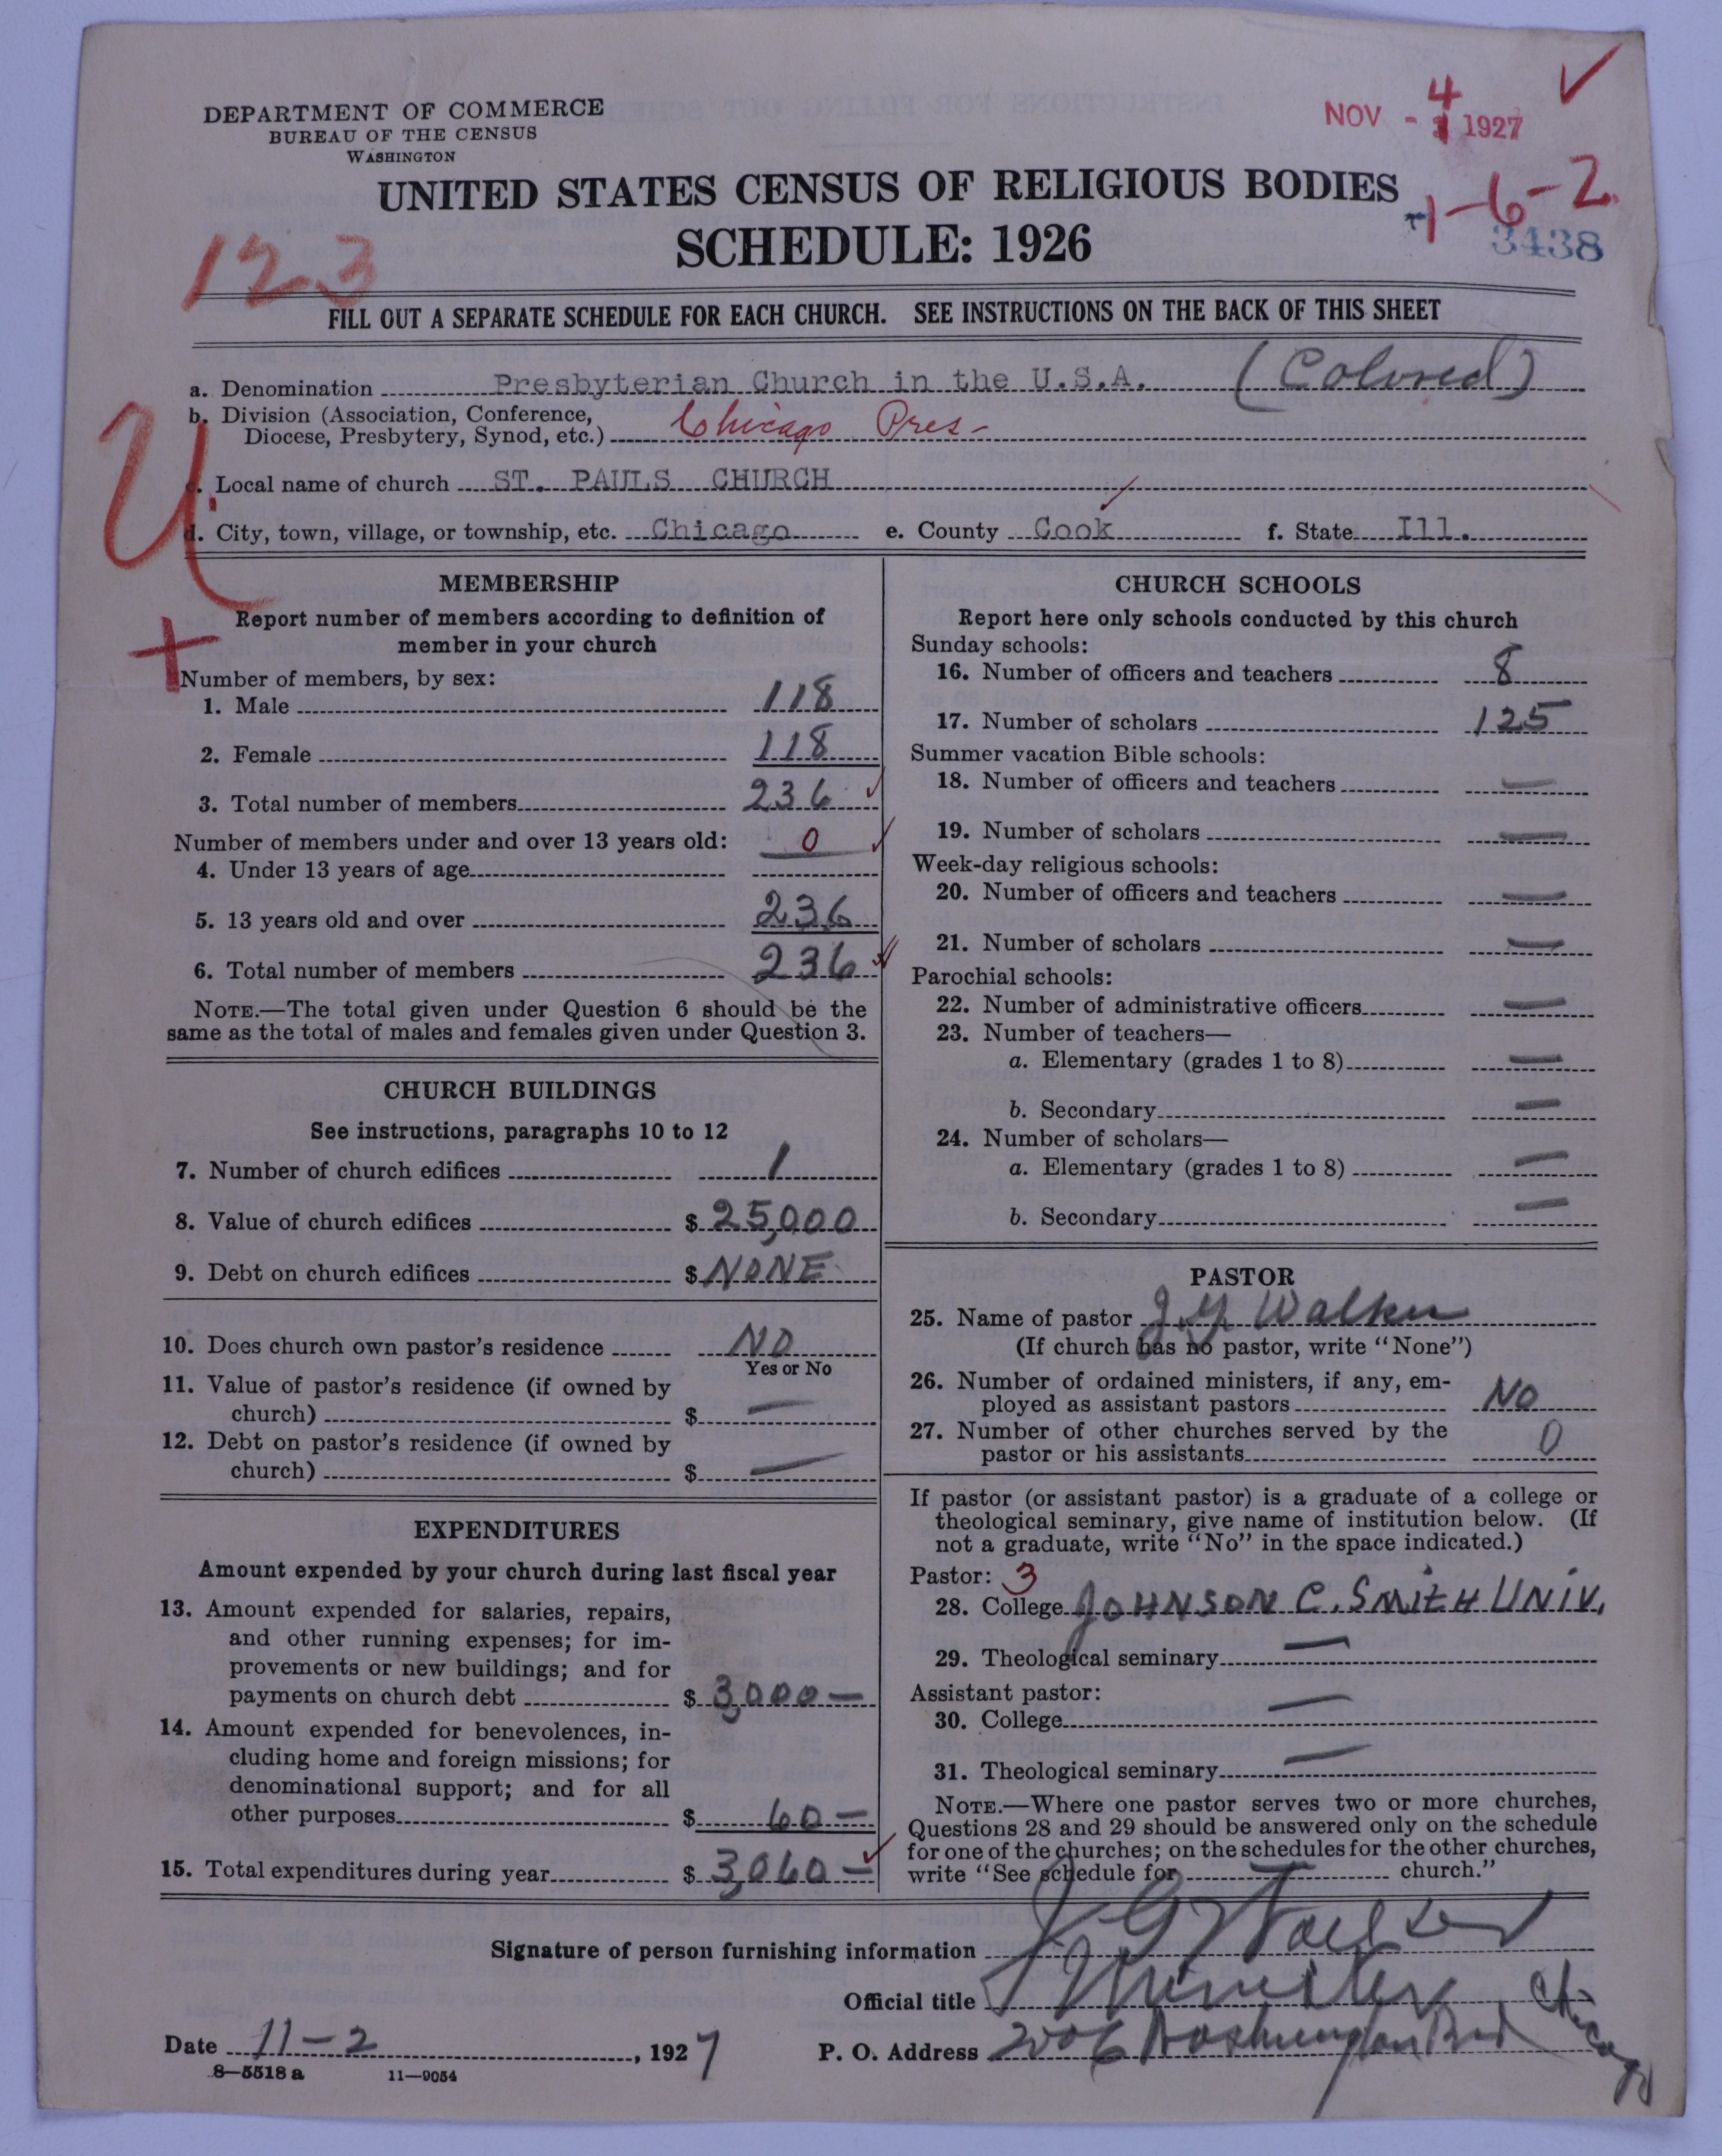 DEPARTMENT OF COMMERCE
BUREAU OF THE CENSUS
WASHINGTON
NOV - 4 1927
UNITED STATES CENSUS OF RELIGIOUS BODIES
1-6-2
SCHEDULE: 1926
3438
123
FILL OUT A SEPARATE SCHEDULE FOR EACH CHURCH. SEE INSTRUCTIONS ON THE BACK OF THIS SHEET
a. Denomination Presbyterian Church in the U.S.A. (Colored)
b. Division (Association, Conference,
Diocese, Presbytery, Synod, etc.) Chicago Pres-
U
c. Local name of church ST. PAULS CHURCH
d. City, town, village, or township, etc. Chicago e. County Cook f. State Ill.
MEMBERSHIP
Report number of members according to definition of
member in your church
Number of members, by sex:
1. Male 118
2. Female 118
3. Total number of members 236
Number of members under and over 13 years old: 0
4. Under 13 years of age
5. 13 years old and over 236
6. Total number of members 236
NOTE.—The total given under Question 6 should be the
same as the total of males and females given under Question 3.
CHURCH BUILDINGS
See instructions, paragraphs 10 to 12
7. Number of church edifices 1
8. Value of church edifices $ 25,000
9. Debt on church edifices $ NONE
10. Does church own pastor's residence NO
Yes or No
11. Value of pastor's residence (if owned by
church) $ —
12. Debt on pastor's residence (if owned by
church) $ —
EXPENDITURES
Amount expended by your church during last fiscal year
13. Amount expended for salaries, repairs,
and other running expenses; for im-
provements or new buildings; and for
payments on church debt $ 3,000—
14. Amount expended for benevolences, in-
cluding home and foreign missions; for
denominational support; and for all
other purposes $ 60—
15. Total expenditures during year $ 3,060—
CHURCH SCHOOLS
Report here only schools conducted by this church
Sunday schools:
16. Number of officers and teachers 8
17. Number of scholars 125
Summer vacation Bible schools:
18. Number of officers and teachers —
19. Number of scholars —
Week-day religious schools:
20. Number of officers and teachers —
21. Number of scholars —
Parochial schools:
22. Number of administrative officers —
23. Number of teachers—
a. Elementary (grades 1 to 8) —
b. Secondary —
24. Number of scholars—
a. Elementary (grades 1 to 8) —
b. Secondary —
PASTOR
25. Name of pastor J. G. Walker
(If church has no pastor, write "None")
26. Number of ordained ministers, if any, em-
ployed as assistant pastors NO
27. Number of other churches served by the
pastor or his assistants 0
If pastor (or assistant pastor) is a graduate of a college or
theological seminary, give name of institution below. (If
not a graduate, write "No" in the space indicated.)
Pastor: 3
28. College JOHNSON C. SMITH UNIV.
29. Theological seminary —
Assistant pastor:
30. College —
31. Theological seminary —
NOTE.—Where one pastor serves two or more churches,
Questions 28 and 29 should be answered only on the schedule
for one of the churches; on the schedules for the other churches,
write "See schedule for church."
Signature of person furnishing information J G Walker
Official title Minister
Date 11-2, 1927 P. O. Address 2006 Washington Bvd Chicago
8—5518 a 11—9054